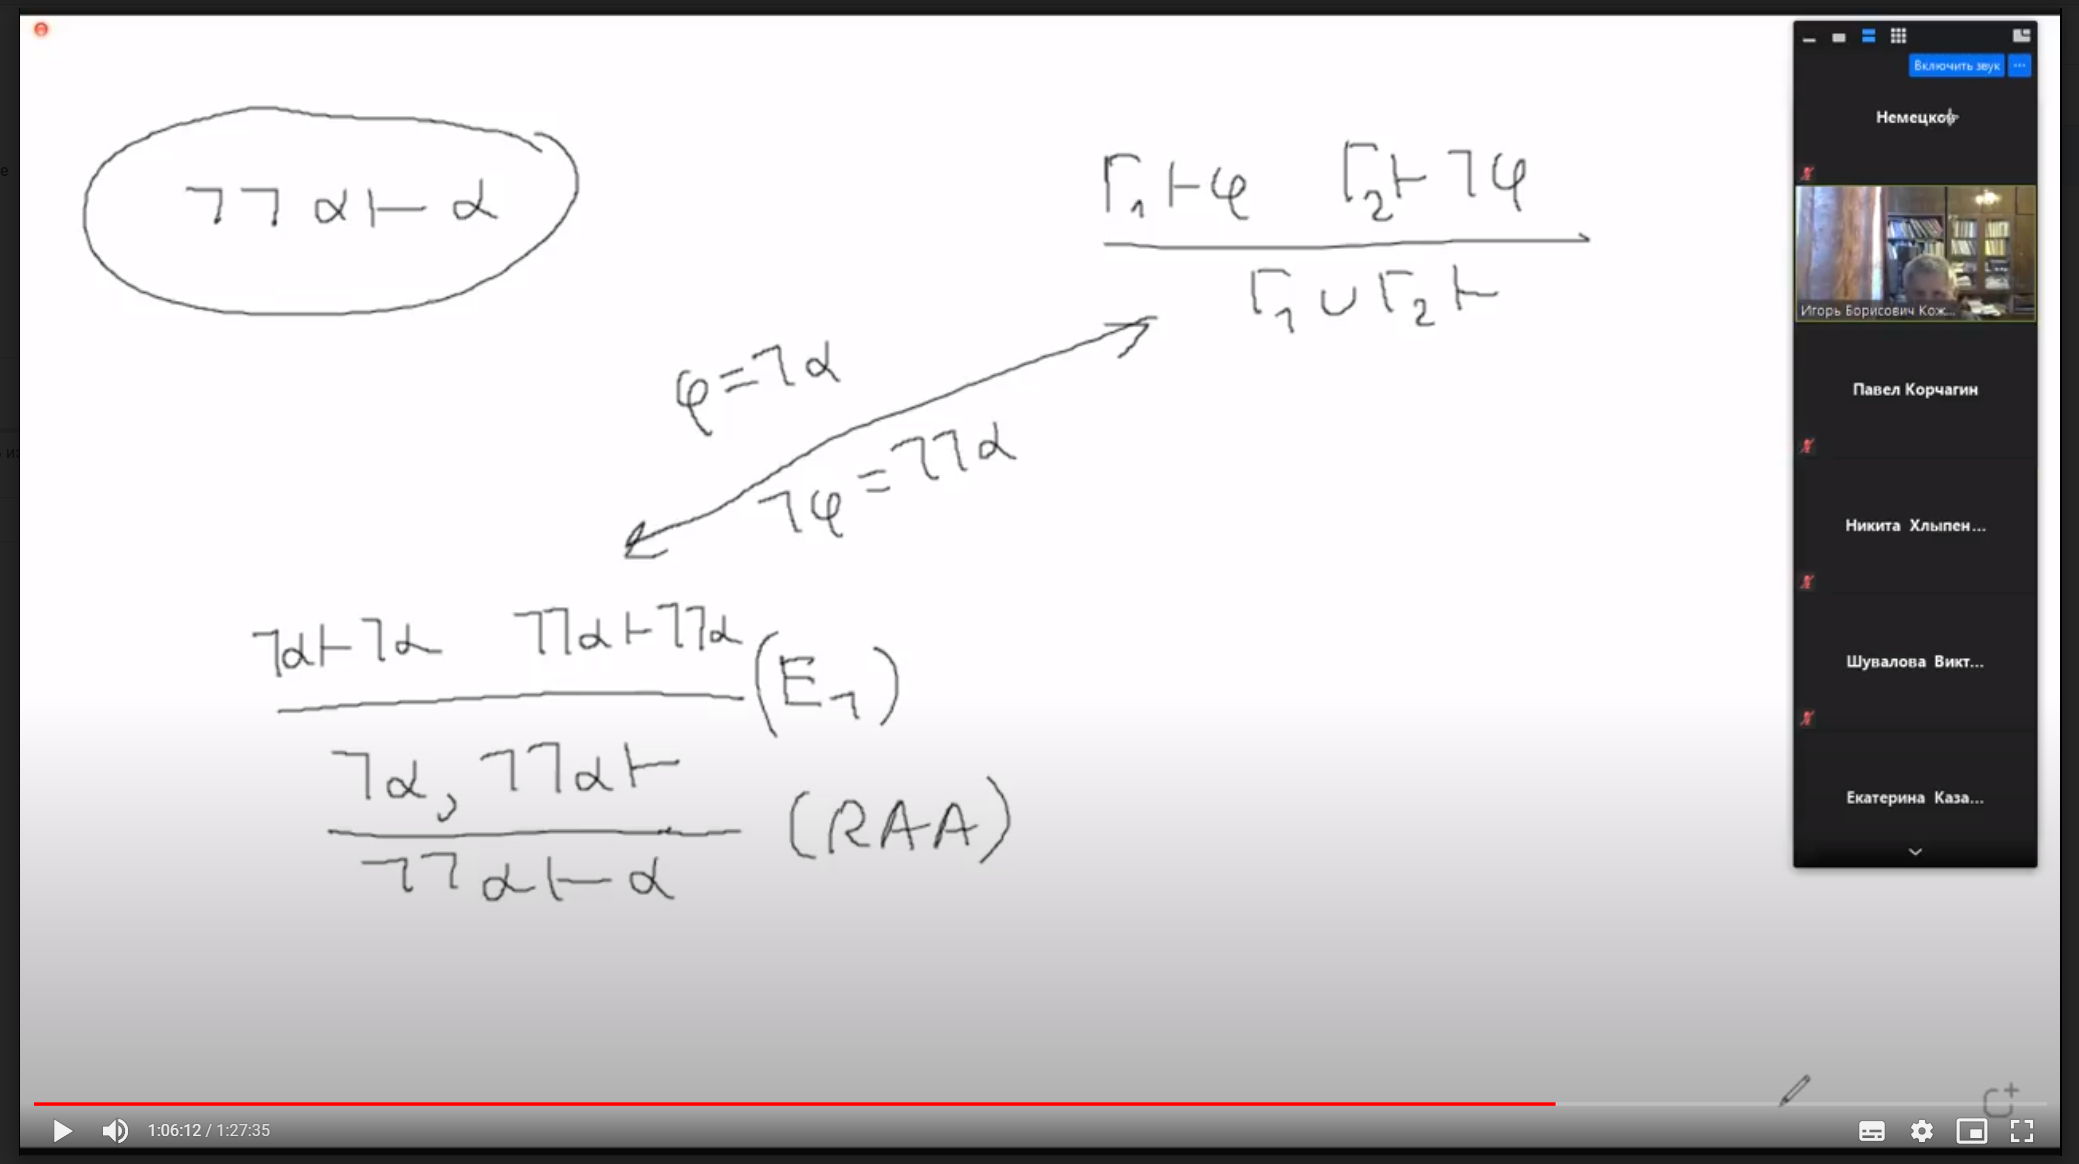 ¬¬α⊢α
Γ₁⊢φ Γ₂⊢¬φ
Γ₁∪Γ₂⊢
φ=¬α
¬φ=¬¬α
¬α⊢¬α ¬¬α⊢¬¬α (E¬)
¬α, ¬¬α⊢
(RAA)
¬¬α⊢α
Включить звук
Немецков
Игорь Борисович Кож...
Павел Корчагин
Никита Хлыпен...
Шувалова Викт...
Екатерина Каза...
1:06:12 / 1:27:35